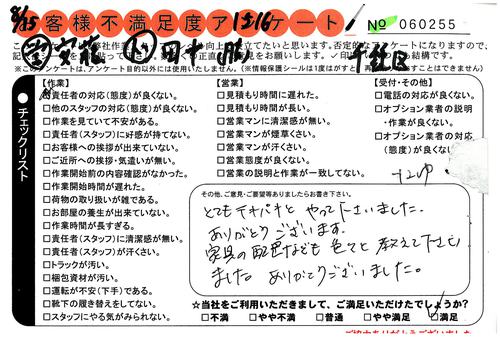 お客様不満足度アンケート
No 060255
※このアンケートは、アンケート目的以外には使用いたしません。(※情報保護シールは1度はがすと、再
チェックリスト
【作業】
□責任者の対応(態度)が良くない。
□他のスタッフの対応(態度)が良くない。
□作業を見ていて不安がある。
□責任者(スタッフ)に好感が持てない。
□お客様への挨拶が出来ていない。
□ご近所への挨拶・気遣いが無い。
□作業開始前の内容確認がなかった。
□作業開始時間が遅れた。
□荷物の取り扱いが雑である。
□お部屋の養生が出来ていない。
□作業時間が長すぎる。
□責任者(スタッフ)に清潔感が無い。
□責任者(スタッフ)が汗くさい。
□トラックが汚い。
□梱包資材が汚い。
□運転が不安(下手)である。
□靴下の履き替えをしてない。
□スタッフにやる気がみられない。
【営業】
□見積もり時間に遅れた。
□見積もり時間が長い。
□営業マンに清潔感が無い。
□営業マンが煙草くさい。
□営業マンが汗くさい。
□営業態度が良くない。
□営業の説明と作業が一致してない。
【受付・その他】
□電話の対応が良くない。
□オプション業者の説明
・作業が良くない。
□オプション業者の対応
(態度)が良くない
その他、ご意見・ご要望等ありましたらお書き下さい。
とてもテキパキと やって下さいました。
ありがとうございます。
家具の配色なども 色々と 教えて下さい
ました。 ありがとうございました。
☆当社をご利用いただきまして、ご満足いただけたでしょうか?
□不満 □やや不満 □普通 □やや満足 □満足
ご協力ありがとうございました